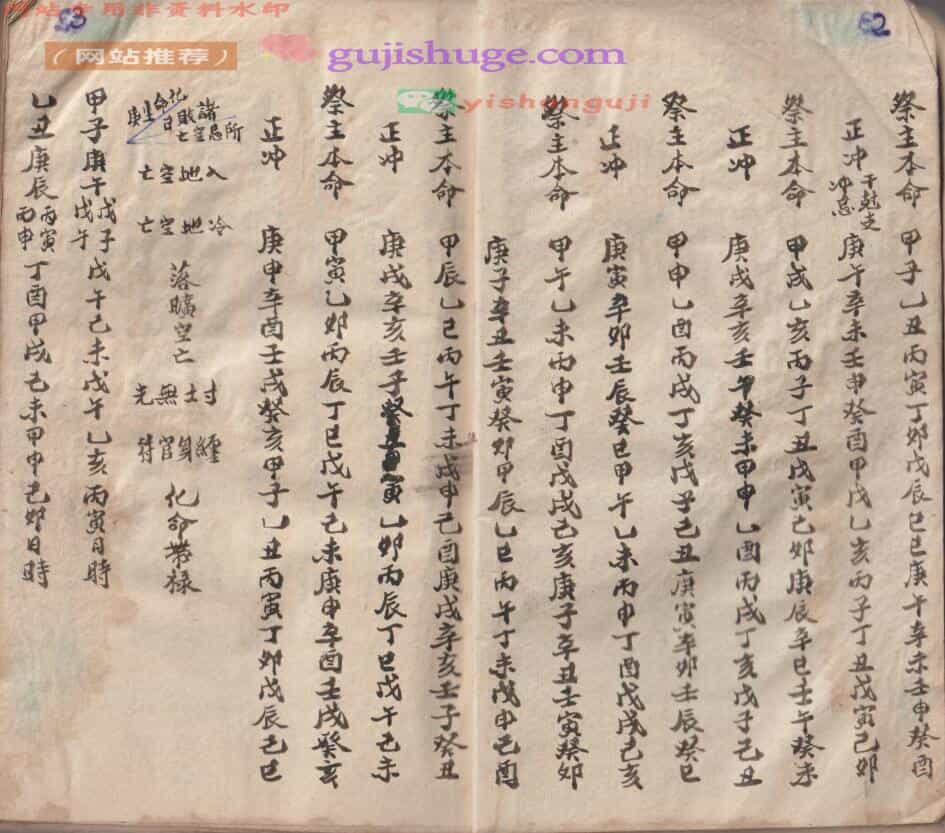 网站专用非资料水印
(网站推荐)
gujishuge.com
yishanguji
62
祭主本命 甲子乙丑丙寅丁卯戊辰己巳庚午辛未壬申癸酉
正冲 干尅支冲忌 庚午辛未壬申癸酉甲戌乙亥丙子丁丑戊寅己卯
祭主本命 甲戌乙亥丙子丁丑戊寅己卯庚辰辛巳壬午癸未
正冲 庚戌辛亥壬午癸未甲申乙酉丙戌丁亥戊子己丑
祭主本命 甲申乙酉丙戌丁亥戊子己丑庚寅辛卯壬辰癸巳
正冲 庚寅辛卯壬辰癸巳甲午乙未丙申丁酉戊戌己亥
祭主本命 甲午乙未丙申丁酉戊戌己亥庚子辛丑壬寅癸卯
庚子辛丑壬寅癸卯甲辰乙巳丙午丁未戊申己酉
63
祭主本命 甲辰乙巳丙午丁未戊申己酉庚戌辛亥壬子癸丑
正冲 庚戌辛亥壬子癸丑寅乙卯丙辰丁巳戊午己未
祭主本命 甲寅乙卯丙辰丁巳戊午己未庚申辛酉壬戌癸亥
正冲 庚申辛酉壬戌癸亥甲子乙丑丙寅丁卯戊辰己巳
化命生庚 諸敗日空亡所忌
入地空亡
冷地空亡
落曠空亡
寸土無光
纏身官符
化命帶祿
甲子庚午戊子戊午戊午己未戊午乙亥丙寅日時
乙丑庚辰丙寅丙申丁酉甲戌己未甲申己卯日時